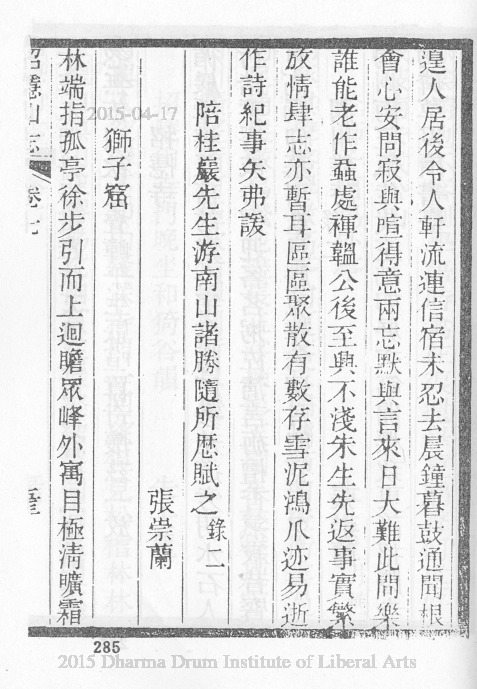 遑人居後令人軒流連信宿未忍去晨鐘暮鼓通聞根
會心安問寂與喧得意兩忘默與言來日大難此問樂
誰能老作蝨處褌韞公後至興不淺朱生先返事實繁
放情肆志亦暫耳區區聚散有數存雪泥鴻爪迹易逝
作詩紀事矢弗諼
陪桂巖先生游南山諸勝隨所歴賦之 錄二
張崇蘭
獅子窟
林端指孤亭徐步引而上迴瞻眾峰外寓目極淸曠霜
招隱山志 卷七
2015-04-17
285
2015 Dharma Drum Institute of Liberal Arts